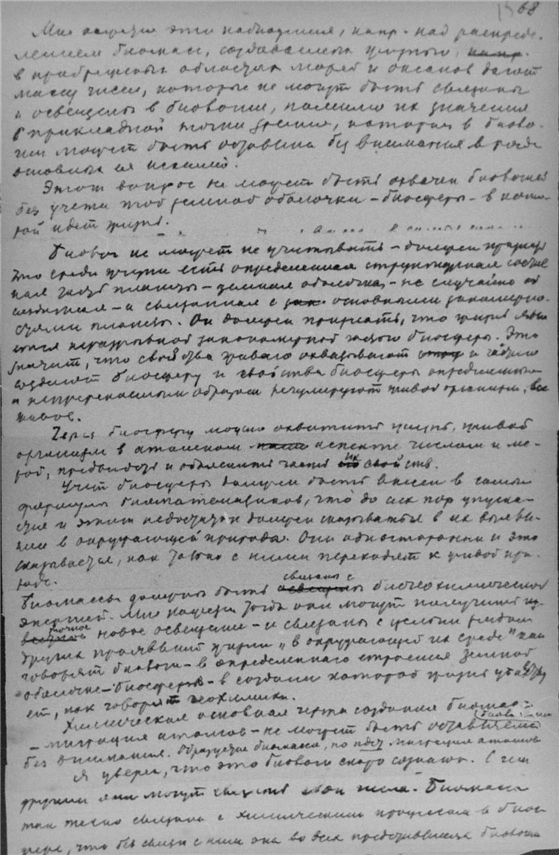 68
Мне кажется эти наблюдения, напр. над распреде-
лением биомасс, создаваемых жизнью,
в прибрежных областях морей и океанов дают
массу чисел, которые не могут быть связаны
и освещены в биологии, помимо их значения
с прикладной точки зрения, которая в биоло-
гии может быть оставлена без внимания в ряде
основных ее исканий.
Этот вопрос не может быть охвачен биологией
без учета этой земной оболочки - биосферы - в кото-
рой идет жизнь.
Биолог не может не учитывать - должен
что среда жизни есть определенная структурная состав-
ная часть планеты - земная оболочка - не случайно
- и связанная с основными закономерно-
стями планеты. Он должен признать, что жизнь явля-
ется неразрывной закономерной частью биосферы. Это
значит, что свойства живого охватывают и
создают биосферу и свойства биосферы определенным
и непреложным образом регулируют живой организм, все
живое.
Через биосферу можно охватить жизнь, живой
организм в атомном аспекте числом и ме-
рой, предвидеть и объяснить часть их свойств.
Учет биосферы должен быть внесен в самые
формулы биоматематиков, что до сих пор упуска-
ется и этот недостаток должен сказываться в их выяв-
лении в окружающей природе. Они односторонни и это
сказывается, как только с ними переходят к живой при-
роде.
Биомассы должны быть связаны с биогеохимической
энергией. Мне кажется тогда они могут получить
новое освещение - и связаны с целым рядом
других проявлений жизни „в окружающей их среде" как
говорят биологи - в определенного строения земной
оболочке - биосфере - в создании которой жизнь участву-
ет, как говорят геохимики.
Химическая основная черта создания биомасс
- миграция атомов - не может быть оставлена биологами
без внимания. Образуется биомасса, но идет миграция атомов
Я уверен, что это биологи скоро сознают. С чем
другим они могут связать свои числа. Биомасса
так тесно связана с химическим процессом в биос-
фере, что без связи с ним она во всех представлениях биологов